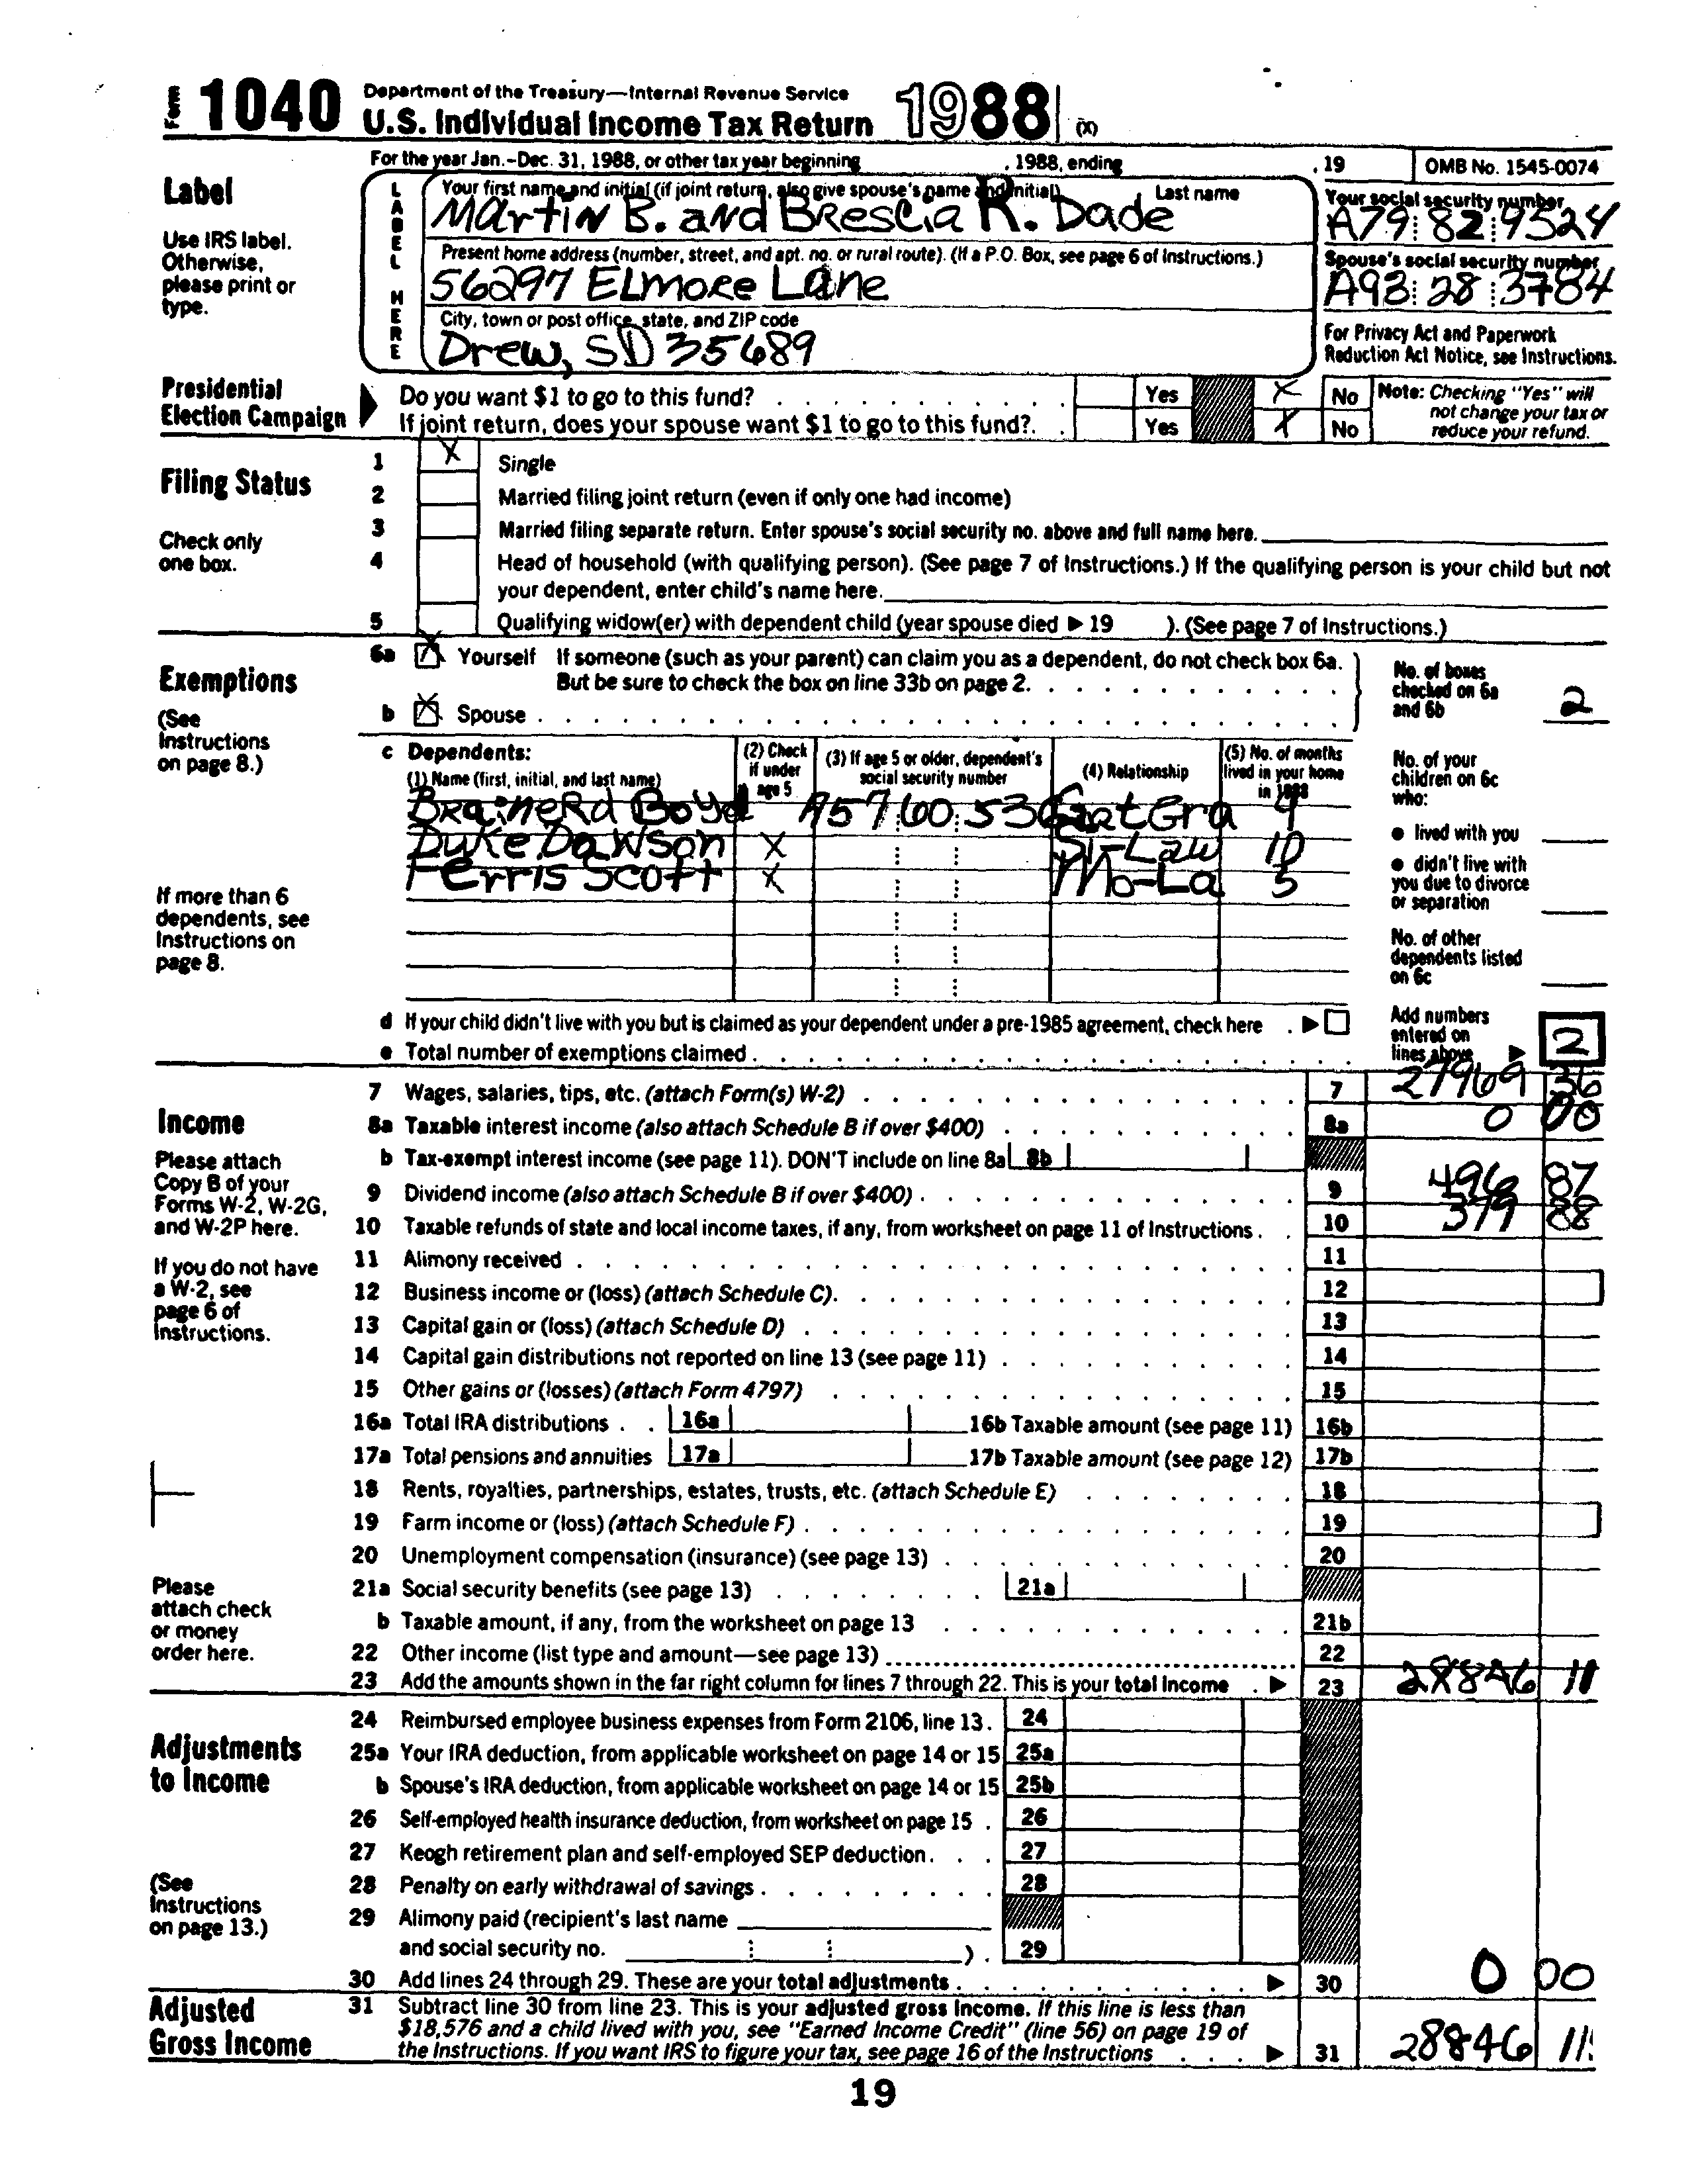 Form 1040 Department of the Treasury—Internal Revenue Service
U.S. Individual Income Tax Return 1988 (X)
For the year Jan.-Dec. 31, 1988, or other tax year beginning , 1988, ending , 19 OMB No. 1545-0074
Label
Use IRS label.
Otherwise,
please print or
type.
LABEL HERE
Your first name and initial (if joint return, also give spouse's name and initial) Last name
Martin B. and Brescia R. Dade
Your social security number
A79 82 9524
Present home address (number, street, and apt. no. or rural route). (If a P.O. Box, see page 6 of Instructions.)
56297 Elmore Lane
Spouse's social security number
A93 28 3784
City, town or post office, state, and ZIP code
Drew, SD 35689
For Privacy Act and Paperwork
Reduction Act Notice, see Instructions.
Presidential
Election Campaign
Do you want $1 to go to this fund? Yes X No
If joint return, does your spouse want $1 to go to this fund?. Yes X No
Note: Checking "Yes" will
not change your tax or
reduce your refund.
Filing Status
Check only
one box.
1 X Single
2 Married filing joint return (even if only one had income)
3 Married filing separate return. Enter spouse's social security no. above and full name here.
4 Head of household (with qualifying person). (See page 7 of Instructions.) If the qualifying person is your child but not
your dependent, enter child's name here.
5 Qualifying widow(er) with dependent child (year spouse died ▶ 19 ). (See page 7 of Instructions.)
Exemptions
(See
Instructions
on page 8.)
6a X Yourself If someone (such as your parent) can claim you as a dependent, do not check box 6a.
But be sure to check the box on line 33b on page 2.
b X Spouse
No. of boxes
checked on 6a
and 6b 2
c Dependents:
(1) Name (first, initial, and last name)
(2) Check
if under
age 5
(3) If age 5 or older, dependent's
social security number
(4) Relationship
(5) No. of months
lived in your home
in 1988
Brainerd Boyd A57 60 536 GratGra 4
Duke Dawson X Si-Law 10
Ferris Scott X Mo-La 5
No. of your
children on 6c
who:
● lived with you
● didn't live with
you due to divorce
or separation
No. of other
dependents listed
on 6c
If more than 6
dependents, see
Instructions on
page 8.
d If your child didn't live with you but is claimed as your dependent under a pre-1985 agreement, check here . ▶
e Total number of exemptions claimed
Add numbers
entered on
lines above ▶ 2
Income
Please attach
Copy B of your
Forms W-2, W-2G,
and W-2P here.
If you do not have
a W-2, see
page 6 of
Instructions.
Please
attach check
or money
order here.
7 Wages, salaries, tips, etc. (attach Form(s) W-2) 7 27969 36
8a Taxable interest income (also attach Schedule B if over $400) 8a 0 00
b Tax-exempt interest income (see page 11). DON'T include on line 8a 8b
9 Dividend income (also attach Schedule B if over $400) 9 496 87
10 Taxable refunds of state and local income taxes, if any, from worksheet on page 11 of Instructions 10 379 88
11 Alimony received 11
12 Business income or (loss) (attach Schedule C). 12
13 Capital gain or (loss) (attach Schedule D) 13
14 Capital gain distributions not reported on line 13 (see page 11) 14
15 Other gains or (losses) (attach Form 4797) 15
16a Total IRA distributions 16a 16b Taxable amount (see page 11) 16b
17a Total pensions and annuities 17a 17b Taxable amount (see page 12) 17b
18 Rents, royalties, partnerships, estates, trusts, etc. (attach Schedule E) 18
19 Farm income or (loss) (attach Schedule F) 19
20 Unemployment compensation (insurance) (see page 13) 20
21a Social security benefits (see page 13) 21a
b Taxable amount, if any, from the worksheet on page 13 21b
22 Other income (list type and amount—see page 13) 22
23 Add the amounts shown in the far right column for lines 7 through 22. This is your total income . ▶ 23 28846 11
Adjustments
to Income
(See
Instructions
on page 13.)
24 Reimbursed employee business expenses from Form 2106, line 13. 24
25a Your IRA deduction, from applicable worksheet on page 14 or 15 25a
b Spouse's IRA deduction, from applicable worksheet on page 14 or 15 25b
26 Self-employed health insurance deduction, from worksheet on page 15 . 26
27 Keogh retirement plan and self-employed SEP deduction. 27
28 Penalty on early withdrawal of savings 28
29 Alimony paid (recipient's last name
and social security no. ). 29
30 Add lines 24 through 29. These are your total adjustments ▶ 30 0 00
Adjusted
Gross Income
31 Subtract line 30 from line 23. This is your adjusted gross income. If this line is less than
$18,576 and a child lived with you, see "Earned Income Credit" (line 56) on page 19 of
the Instructions. If you want IRS to figure your tax, see page 16 of the Instructions ▶ 31 28846 11
19